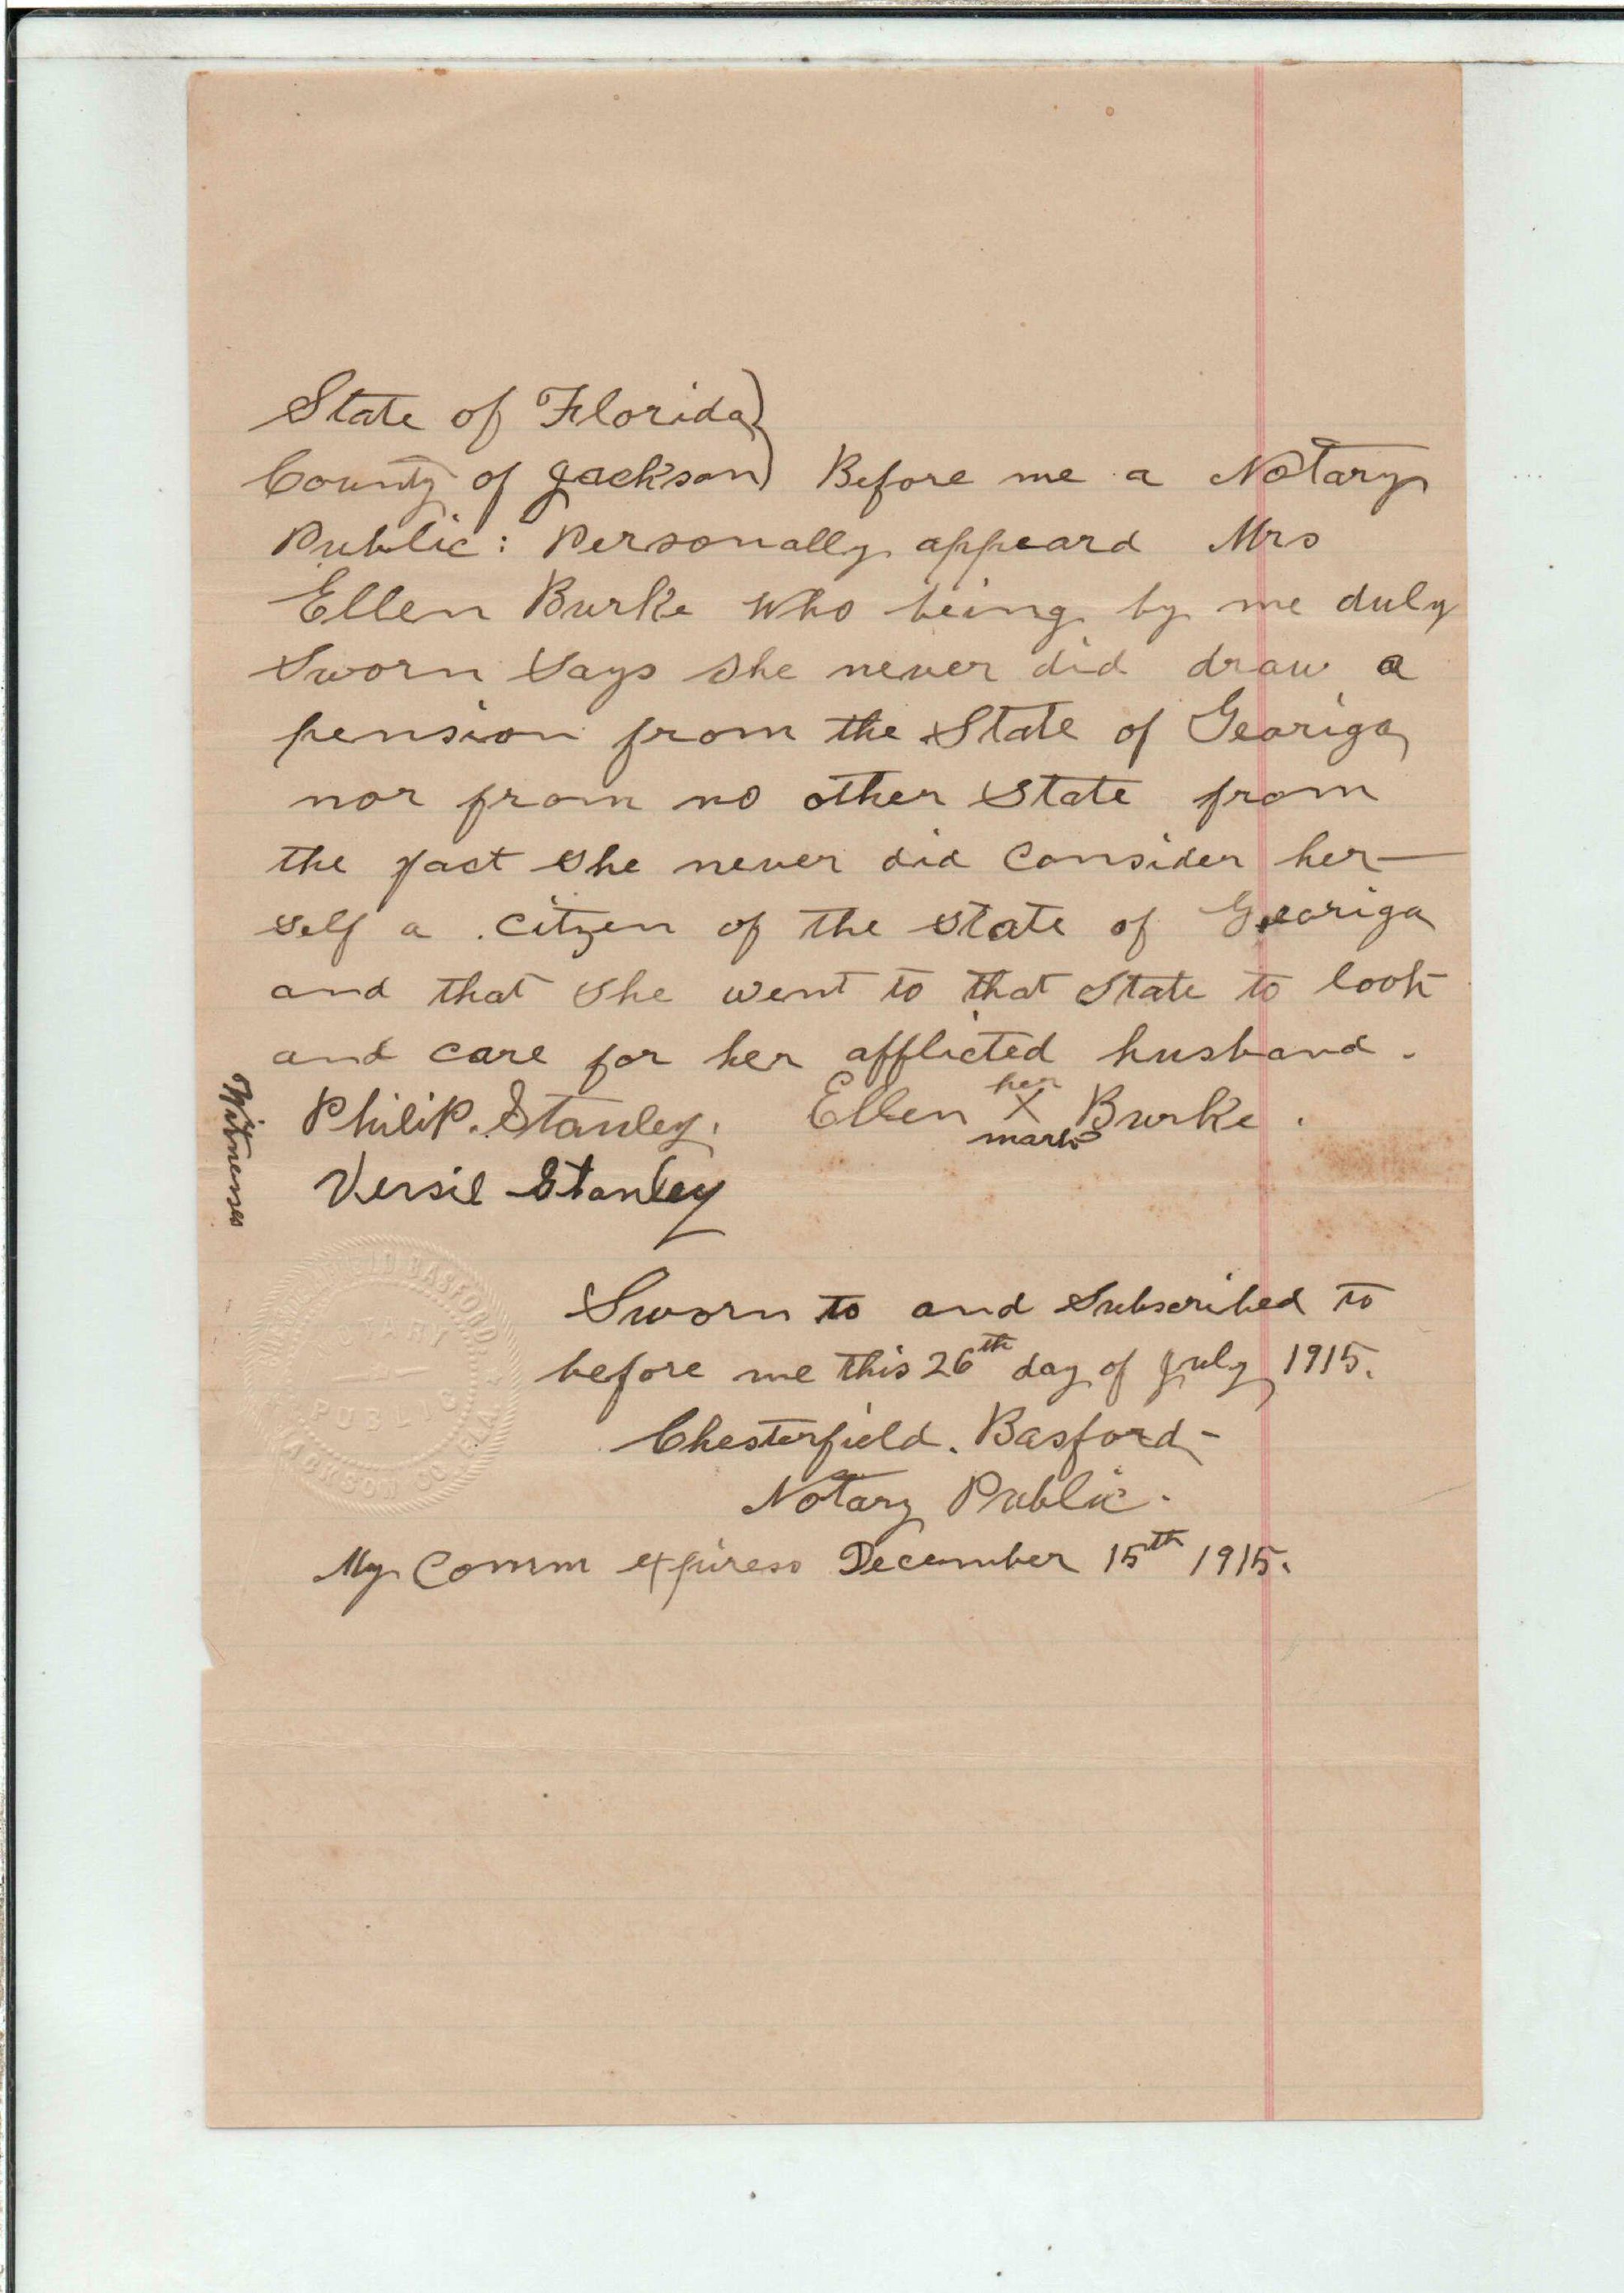 State of Florida)
County of Jackson) Before me a Notary
Public: Personally appeard Mrs
Ellen Burke who being by me duly
Sworn Says She never did draw a
pension from the State of Georiga
nor from no other State from
the fact She never did Consider her-
self a citzen of the State of Georiga
and that She went to that State to look
and care for her afflicted husband.
Witnesses
Philip. Stanley. Ellen her X mark Burke.
Versie Stanley
Sworn to and Subscribed to
before me this 26th day of July 1915.
Chesterfield. Basford-
Notary Public.
My Comm expires December 15th 1915.
BASFORD
NOTARY
PUBLIC
JACKSON CO. FLA.